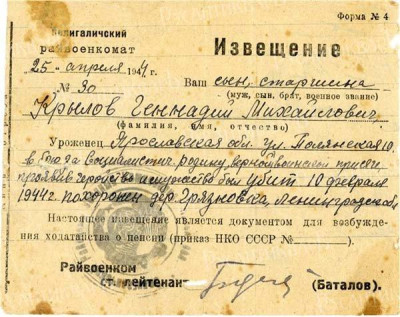 Форма № 4
Солигаличский
райвоенкомат
Извещение
25 апреля 1944 г.
№ 30
Ваш сын, старшина
(муж, сын, брат, военное звание)
Крылов Геннадий Михайлович
(фамилия, имя, отчество)
Уроженец Ярославская обл. ул. Полянская 10.
в бою за Социалистич. родину, верный воинской присяге
проявив геройство и мужество был убит 10 февраля
1944 г. похоронен дер. Грязновка, Ленинградск. обл.
Настоящее извещение является документом для возбужде-
ния ходатайства о пенсии (приказ НКО СССР №
).
Райвоенком
ст. лейтенан
(Баталов).